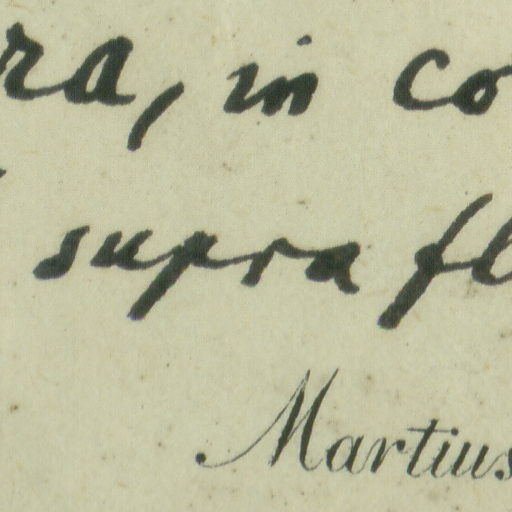 ra, in co
supra fl
Martius